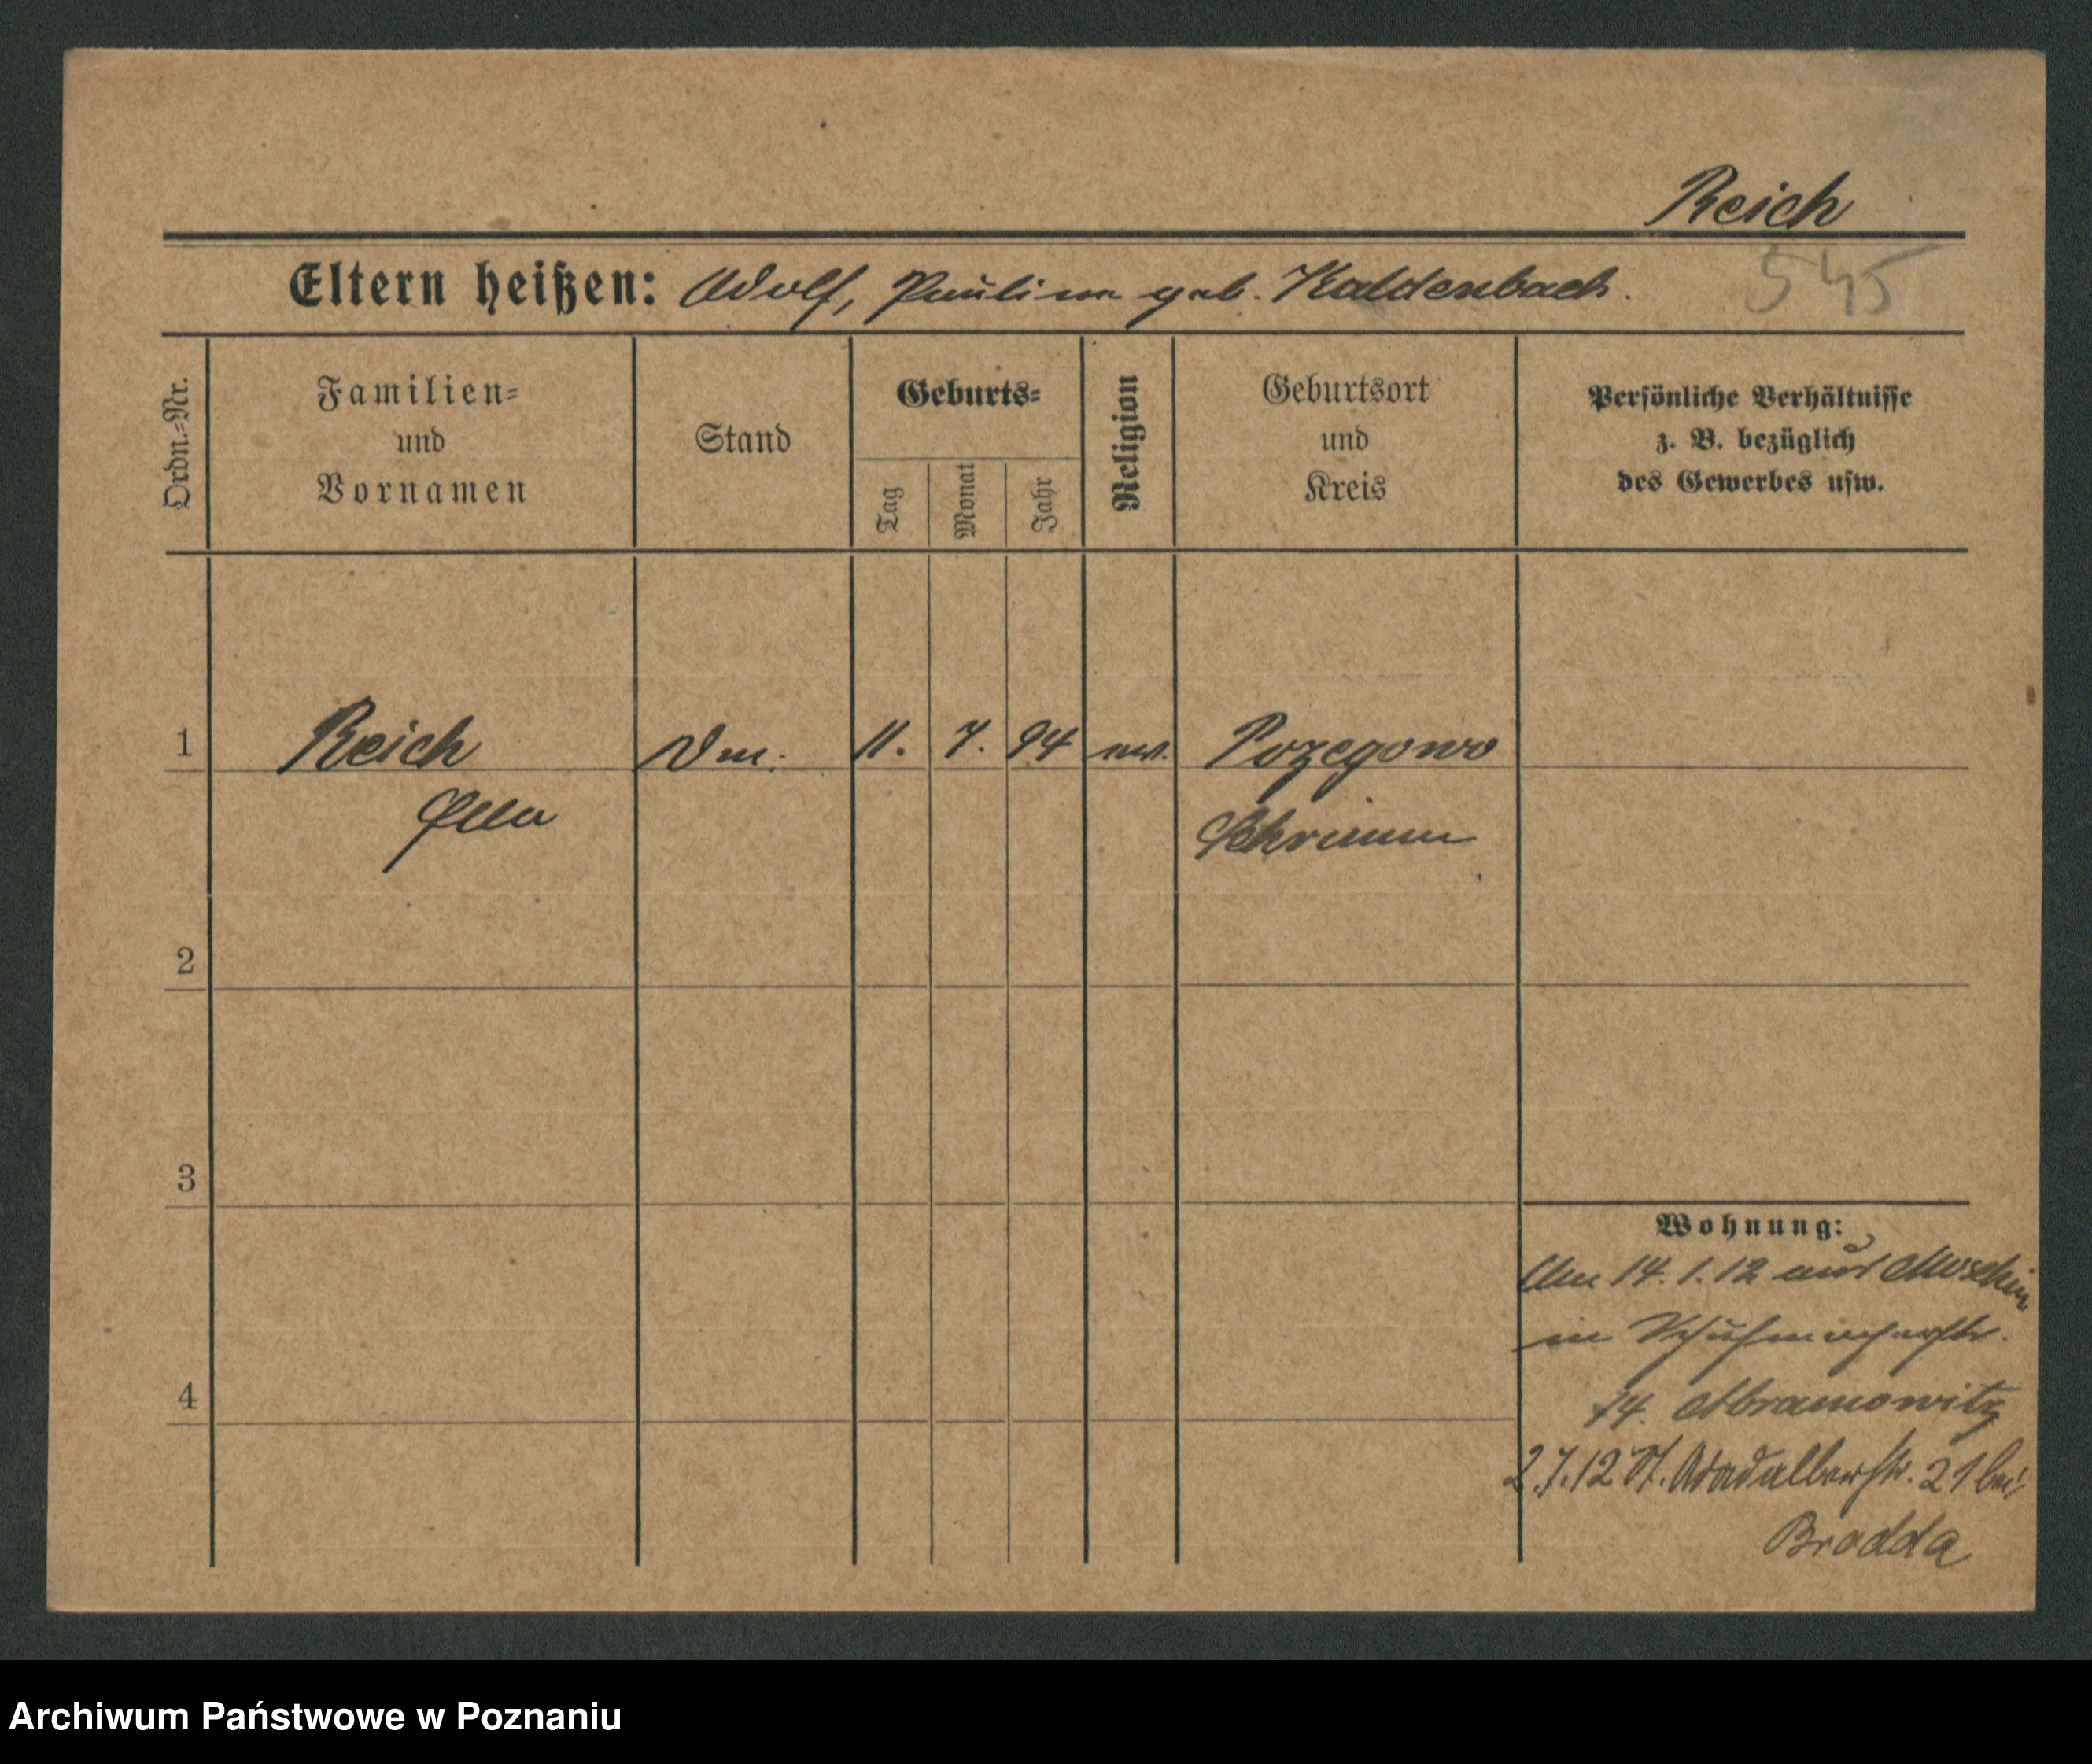 Reich
545
Eltern heißen: Adolf, Pauline geb. Kaldenbach.
Ordn.-Nr.
Familien-
und
Vornamen
Stand
Geburts-
Tag
Monat
Jahr
Religion
Geburtsort
und
Kreis
Persönliche Verhältnisse
z. B. bezüglich
des Gewerbes usw.
1
Reich
11. 7. 94 ev. Pozegowo
Ella
Schrimm
2
3
4
Wohnung:
14. 1. 12 aus Moschin
in Schuhmacherstr.
14. Abramowitz
2.7.12 St. Adalbertstr. 21 bei
Bradda
Archiwum Państwowe w Poznaniu